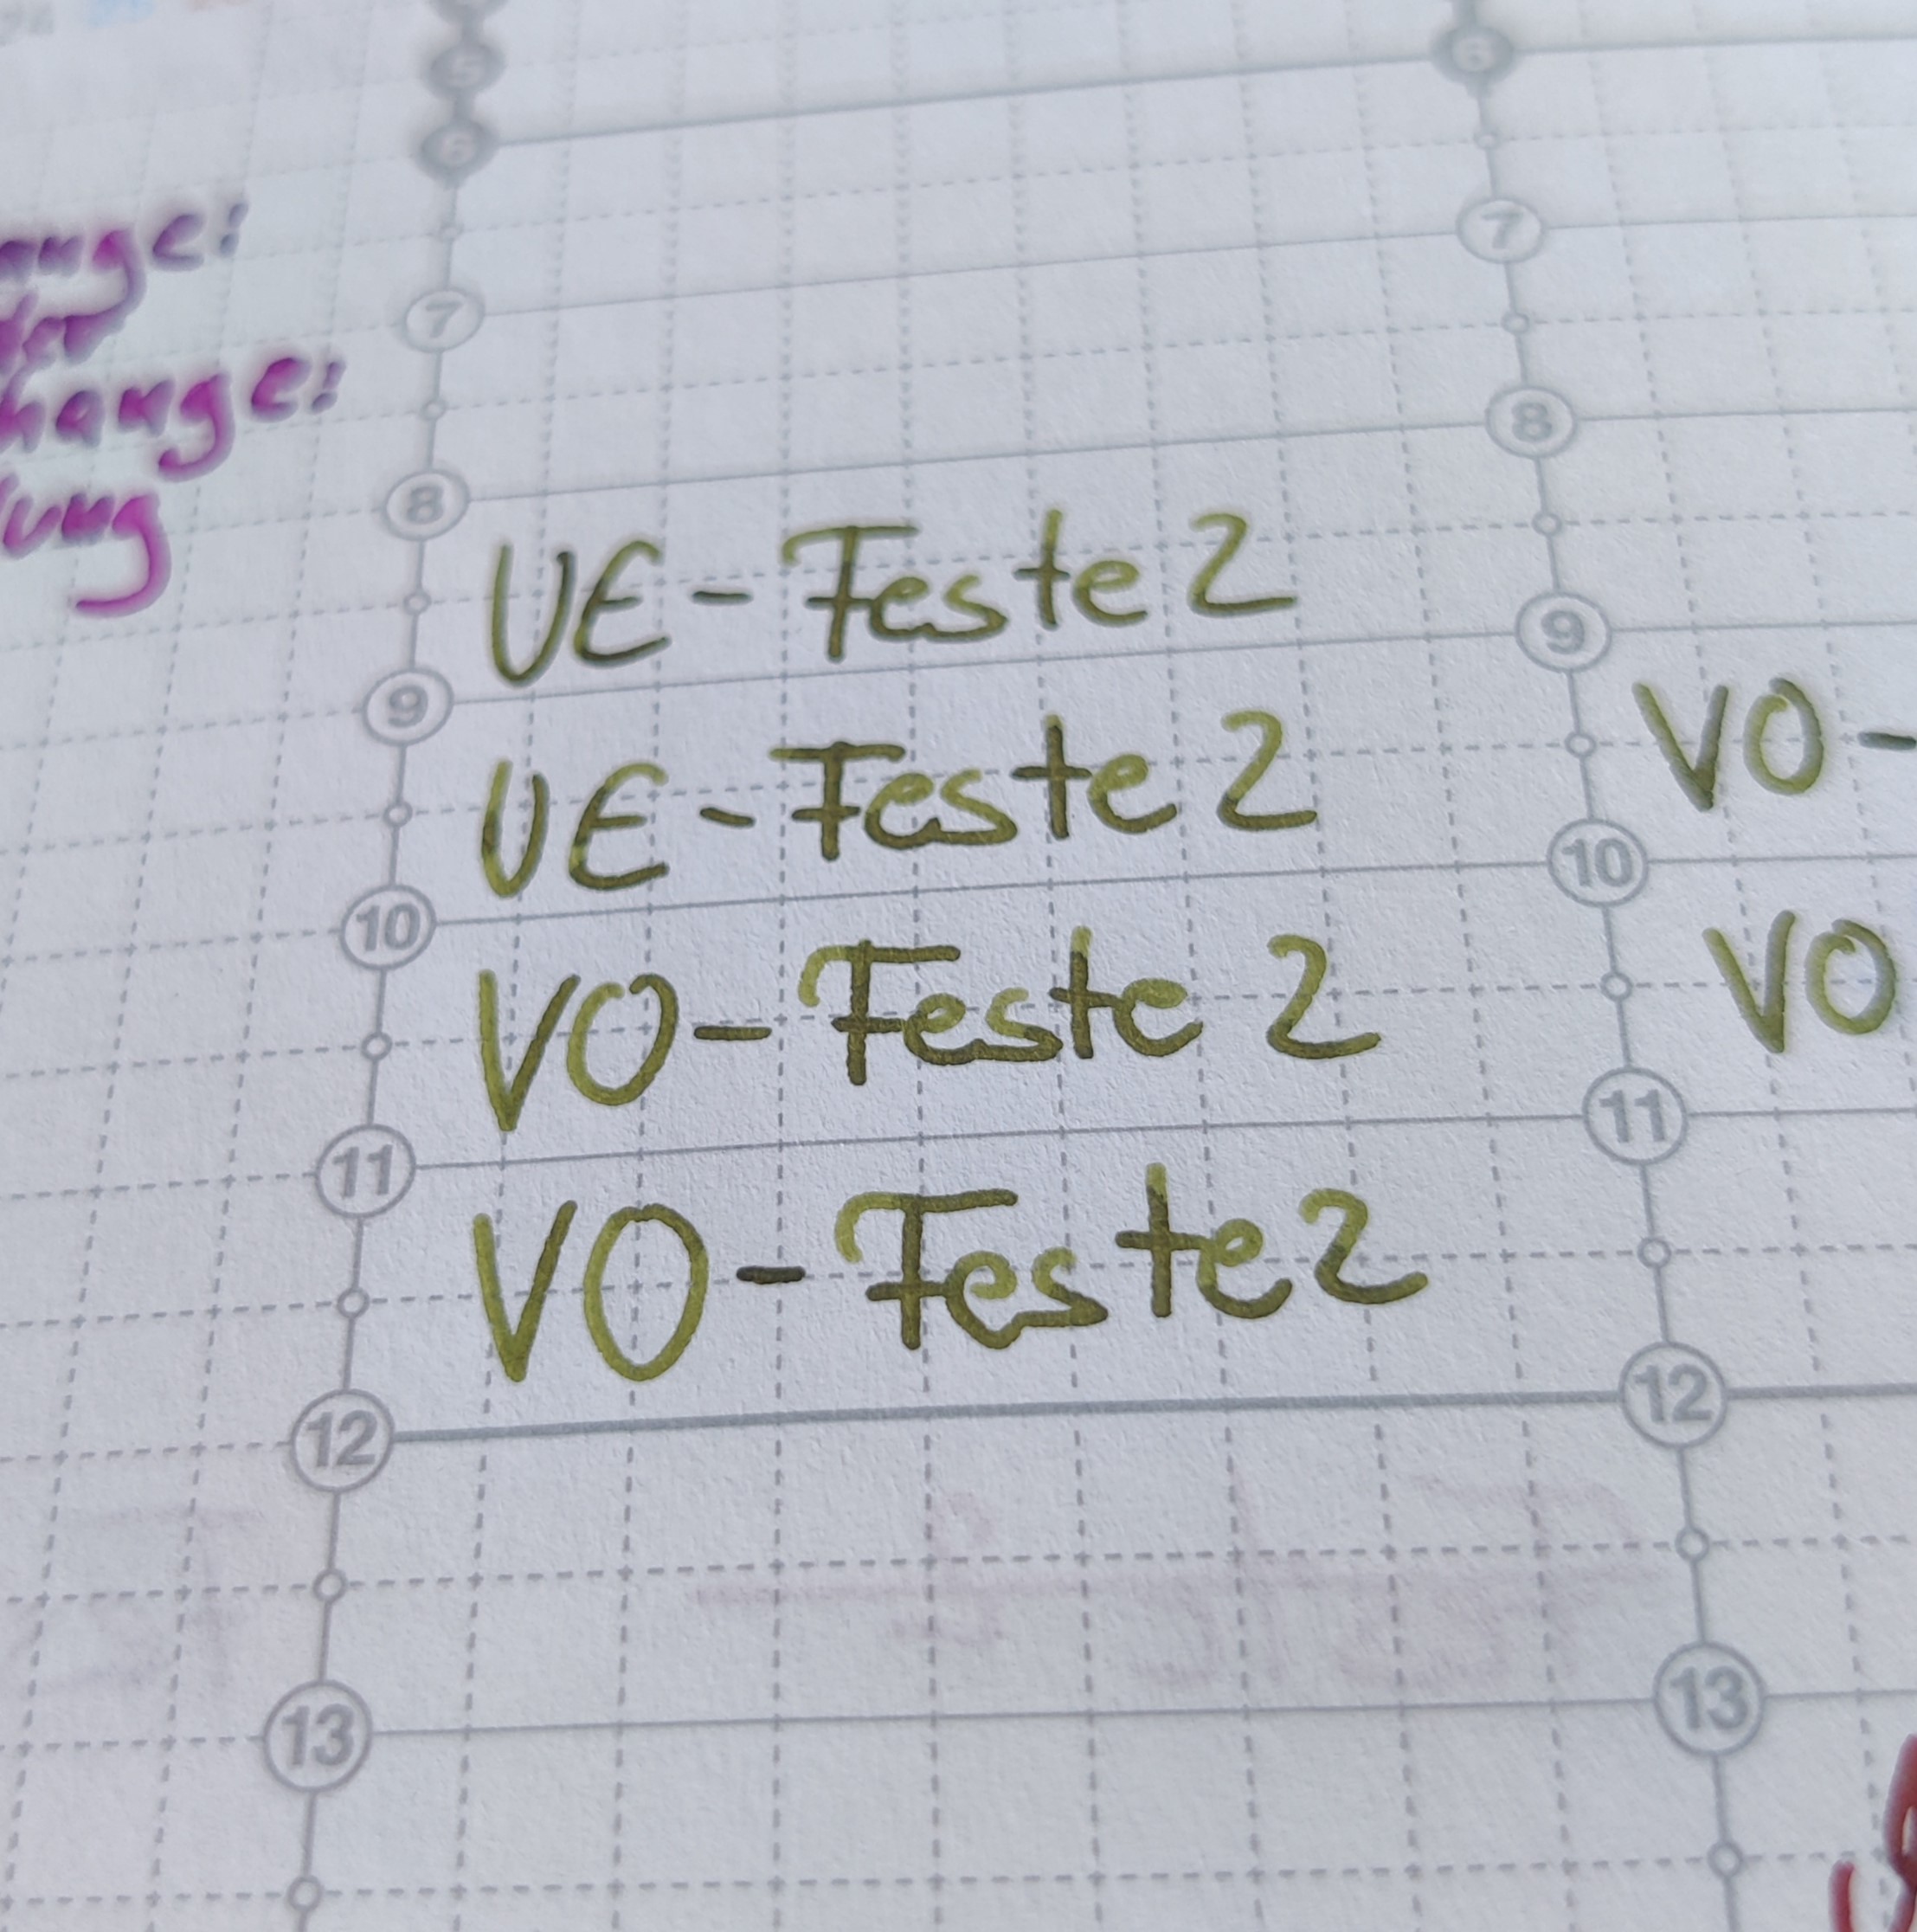 5
6
6
7
7
8
8
9
9
10
10
11
11
12
12
13
13
UE-Feste 2
UE-Feste 2
VO-Feste 2
VO-Feste 2
VO-
VO